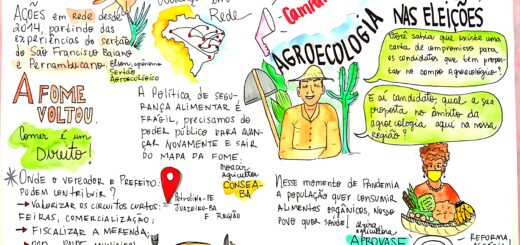 AÇÕES em rede desde
2014, partindo das
experiências do sertão
do São Francisco Baiano
e Pernambucano.
Sertão
Agroecológico
Rede
A FOME
VOLTOU.
Comer é um
Direito!
A Política de SEGU-
RANÇA ALIMENTAR É
FRÁGIL, precisamos do
poder público para AVAN-
ÇAR NOVAMENTE E SAIR
DO MAPA DA FOME.
moacir
agricultor
CONSEA-
BA
*Onde o vereador e Prefeito
podem contribuir?
→ VALORIZAR OS CIRCUITOS CURTOS:
FEIRAS, COMERCIALIZAÇÃO;
→ FISCALIZAR A MERENDA;
Petrolina-PE
Juazeiro-BA
E REGIÃO
AGROECOLOGIA
NAS ELEIÇÕES
Você sabia que existe uma
carta de compromisso para
os candidatos que tem propos-
tas no campo Agroecológico?
E aí candidato, qual a sua
proposta no âmbito da
agroecologia aqui na nossa
Região?
Nesse momento de Pandemia
a população quer consumir
alimentos orgânicos, nosso
povo quer saúde!
agricultora
APROVASF
REFORMA